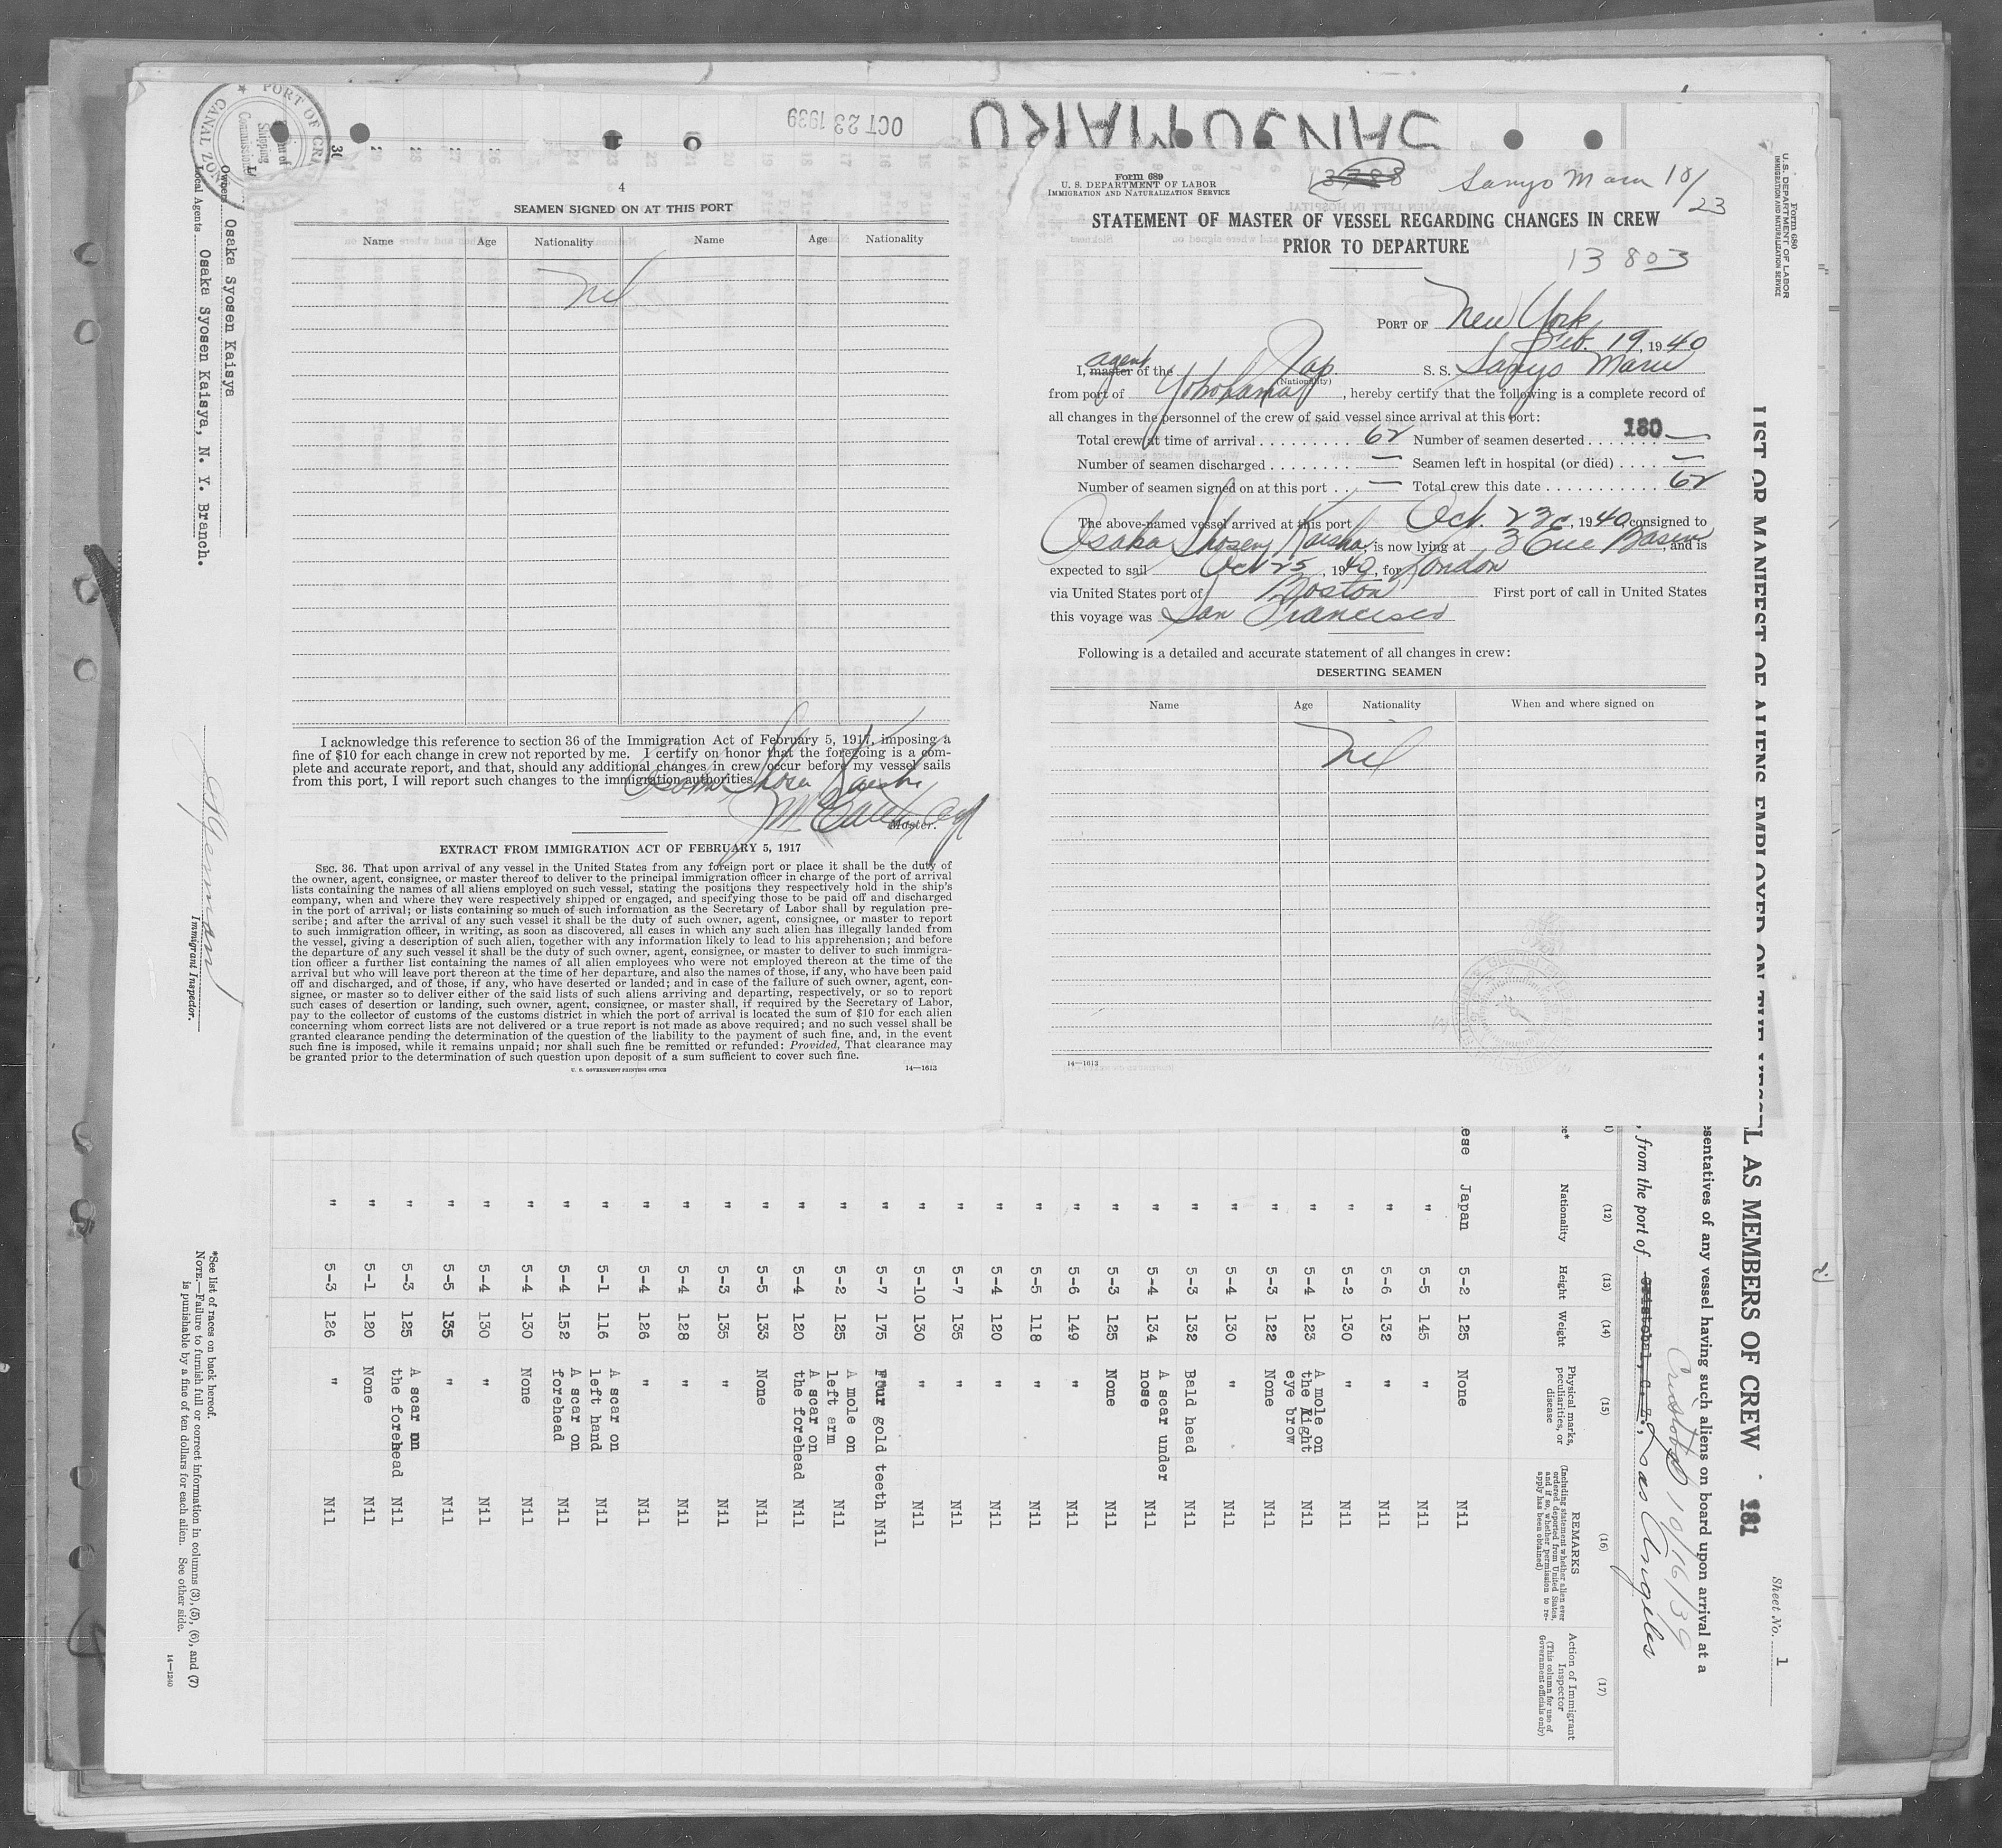 SANYO MARU
OCT 23 1939
PORT OF CRI
CANAL ZO
Shipping
Owner Osaka Syosen Kaisya
Local Agents Osaka Syosen Kaisya, N. Y. Branch.
Immigrant Inspector.
4
SEAMEN SIGNED ON AT THIS PORT
Name Age Nationality Name Age Nationality
nil
I acknowledge this reference to section 36 of the Immigration Act of February 5, 1917, imposing a
fine of $10 for each change in crew not reported by me. I certify on honor that the foregoing is a com-
plete and accurate report, and that, should any additional changes in crew occur before my vessel sails
from this port, I will report such changes to the immigration authorities.
Osaka Shosen Kaisha
Master.
EXTRACT FROM IMMIGRATION ACT OF FEBRUARY 5, 1917
SEC. 36. That upon arrival of any vessel in the United States from any foreign port or place it shall be the duty of
the owner, agent, consignee, or master thereof to deliver to the principal immigration officer in charge of the port of arrival
lists containing the names of all aliens employed on such vessel, stating the positions they respectively hold in the ship's
company, when and where they were respectively shipped or engaged, and specifying those to be paid off and discharged
in the port of arrival; or lists containing so much of such information as the Secretary of Labor shall by regulation pre-
scribe; and after the arrival of any such vessel it shall be the duty of such owner, agent, consignee, or master to report
to such immigration officer, in writing, as soon as discovered, all cases in which any such alien has illegally landed from
the vessel, giving a description of such alien, together with any information likely to lead to his apprehension; and before
the departure of any such vessel it shall be the duty of such owner, agent, consignee, or master to deliver to such immigra-
tion officer a further list containing the names of all alien employees who were not employed thereon at the time of the
arrival but who will leave port thereon at the time of her departure, and also the names of those, if any, who have been paid
off and discharged, and of those, if any, who have deserted or landed; and in case of the failure of such owner, agent, con-
signee, or master so to deliver either of the said lists of such aliens arriving and departing, respectively, or so to report
such cases of desertion or landing, such owner, agent, consignee, or master shall, if required by the Secretary of Labor,
pay to the collector of customs of the customs district in which the port of arrival is located the sum of $10 for each alien
concerning whom correct lists are not delivered or a true report is not made as above required; and no such vessel shall be
granted clearance pending the determination of the question of the liability to the payment of such fine, and, in the event
such fine is imposed, while it remains unpaid; nor shall such fine be remitted or refunded: Provided, That clearance may
be granted prior to the determination of such question upon deposit of a sum sufficient to cover such fine.
U. S. GOVERNMENT PRINTING OFFICE 14—1613
Form 689
U. S. DEPARTMENT OF LABOR
IMMIGRATION AND NATURALIZATION SERVICE
Sanyo Maru 10/23
STATEMENT OF MASTER OF VESSEL REGARDING CHANGES IN CREW
PRIOR TO DEPARTURE
13803
PORT OF New York
Feb. 19, 1940
I, master agent of the Jap S. S. Sanyo Maru
(Nationality)
from port of Yokohama, hereby certify that the following is a complete record of
all changes in the personnel of the crew of said vessel since arrival at this port:
Total crew at time of arrival 62 Number of seamen deserted 180 —
Number of seamen discharged — Seamen left in hospital (or died) —
Number of seamen signed on at this port — Total crew this date 62
The above-named vessel arrived at this port Oct. 23, 1940, consigned to
Osaka Shosen Kaisha, is now lying at 3 Erie Basin, and is
expected to sail Oct 25, 1940, for London
via United States port of Boston First port of call in United States
this voyage was San Francisco
Following is a detailed and accurate statement of all changes in crew:
DESERTING SEAMEN
Name Age Nationality When and where signed on
nil
14—1613
Form 680
U. S. DEPARTMENT OF LABOR
IMMIGRATION AND NATURALIZATION SERVICE
LIST OR MANIFEST OF ALIENS EMPLOYED ON THE VESSEL AS MEMBERS OF CREW 181
Sheet No. 1
sentatives of any vessel having such aliens on board upon arrival at a
Cristobal 10/16/39
, from the port of Cristobal, C. Z., Los Angeles
(12) (13) (14) (15) (16) (17)
Nationality Height Weight Physical marks, peculiarities, or disease REMARKS (Including statement whether alien ever ordered deported from United States, and if so, whether permission to re-apply has been obtained) Action of Immigrant Inspector (This column for use of Government officials only)
ese Japan 5-2 125 None Nil
" 5-5 145 " Nil
" 5-6 132 " Nil
" 5-2 130 " Nil
" 5-4 123 A mole on the Right eye brow Nil
" 5-3 122 None Nil
" 5-4 130 " Nil
" 5-3 132 Bald head Nil
" 5-4 134 A scar under nose Nil
" 5-3 125 None Nil
" 5-6 149 " Nil
" 5-5 118 " Nil
" 5-4 120 " Nil
" 5-7 135 " Nil
" 5-10 130 " Nil
" 5-7 175 Four gold teeth Nil
" 5-2 125 A mole on left arm Nil
" 5-4 120 A scar on the forehead Nil
" 5-5 133 None Nil
" 5-3 135 " Nil
" 5-4 128 " Nil
" 5-4 126 " Nil
" 5-1 116 A scar on left hand Nil
" 5-4 152 A scar on forehead Nil
" 5-4 130 None Nil
" 5-4 130 " Nil
" 5-5 135 " Nil
" 5-3 125 A scar on the forehead Nil
" 5-1 120 None Nil
" 5-3 126 " Nil
*See list of races on back hereof.
NOTE.—Failure to furnish full or correct information in columns (3), (5), (6), and (7)
is punishable by a fine of ten dollars for each alien. See other side.
14—1240